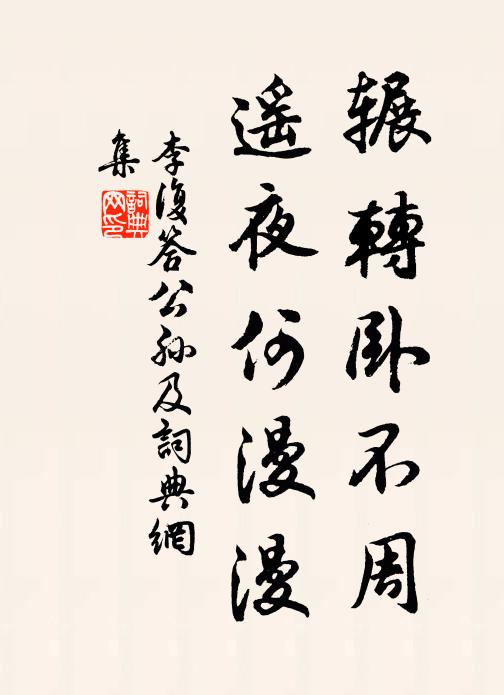 辗轉卧不周
遥夜何漫漫
李復答公孫及詞典網
集
詞典
网印